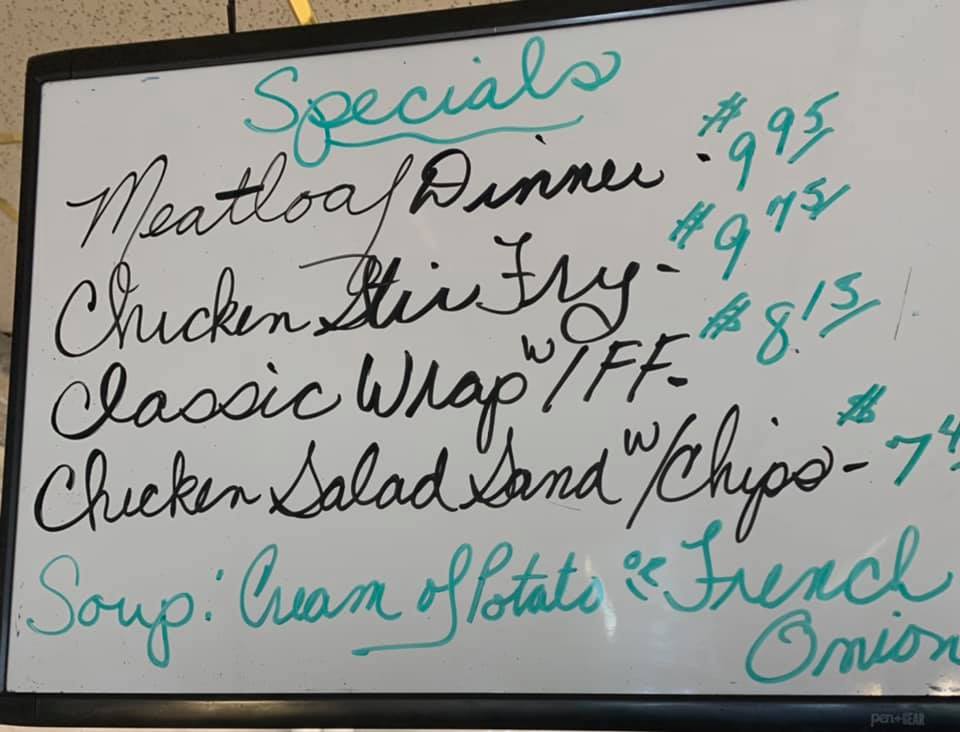 Specials
Meatloaf Dinner - $9.95
Chicken Stir Fry - $9.75
Classic Wrap w/FF - $8.15
Chicken Salad Sand w/Chips - $7
Soup: Cream of Potato or French
Onion
pen+GEAR